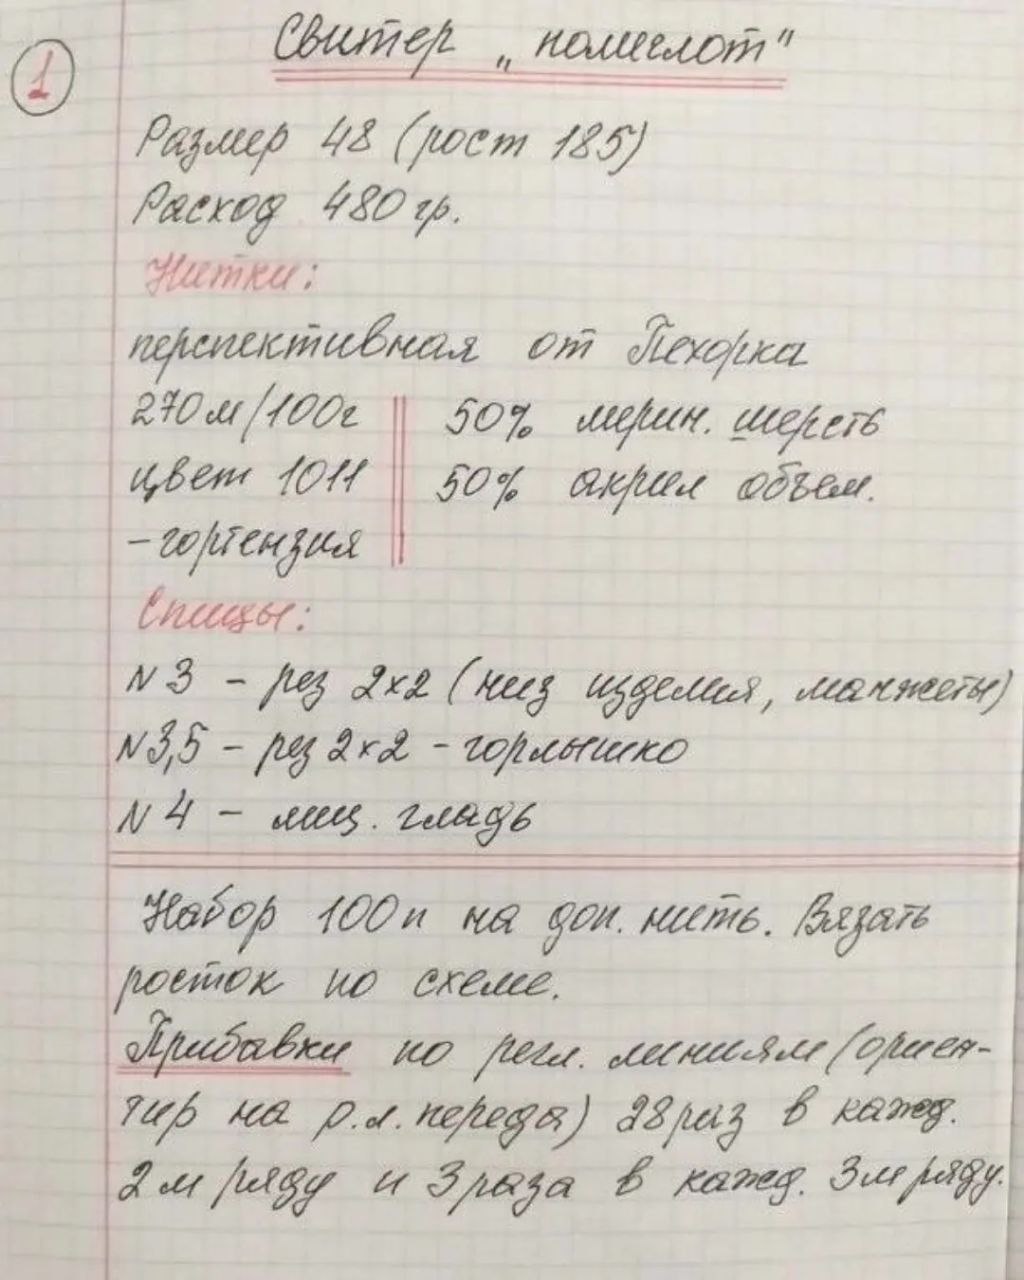 1
Свитер „полиглот"
Размер 48 (рост 185)
Расход 480 гр.
Нитки:
перспективная от Пехорка
270м/100г 50% мерин. шерсть
цвет 1011 50% акрил объем.
- гортензия
Спицы:
N 3 - рез 2х2 (низ изделия, манжеты)
N 3,5 - рез 2х2 - горлышко
N 4 - лиц. гладь
Набор 100п на доп. нить. Вязать
росток по схеме.
Прибавки по регл. линиям (ориен-
тир на р.л. переда) 28 раз в кажд.
2м ряду и 3 раза в кажд. 3м ряду.